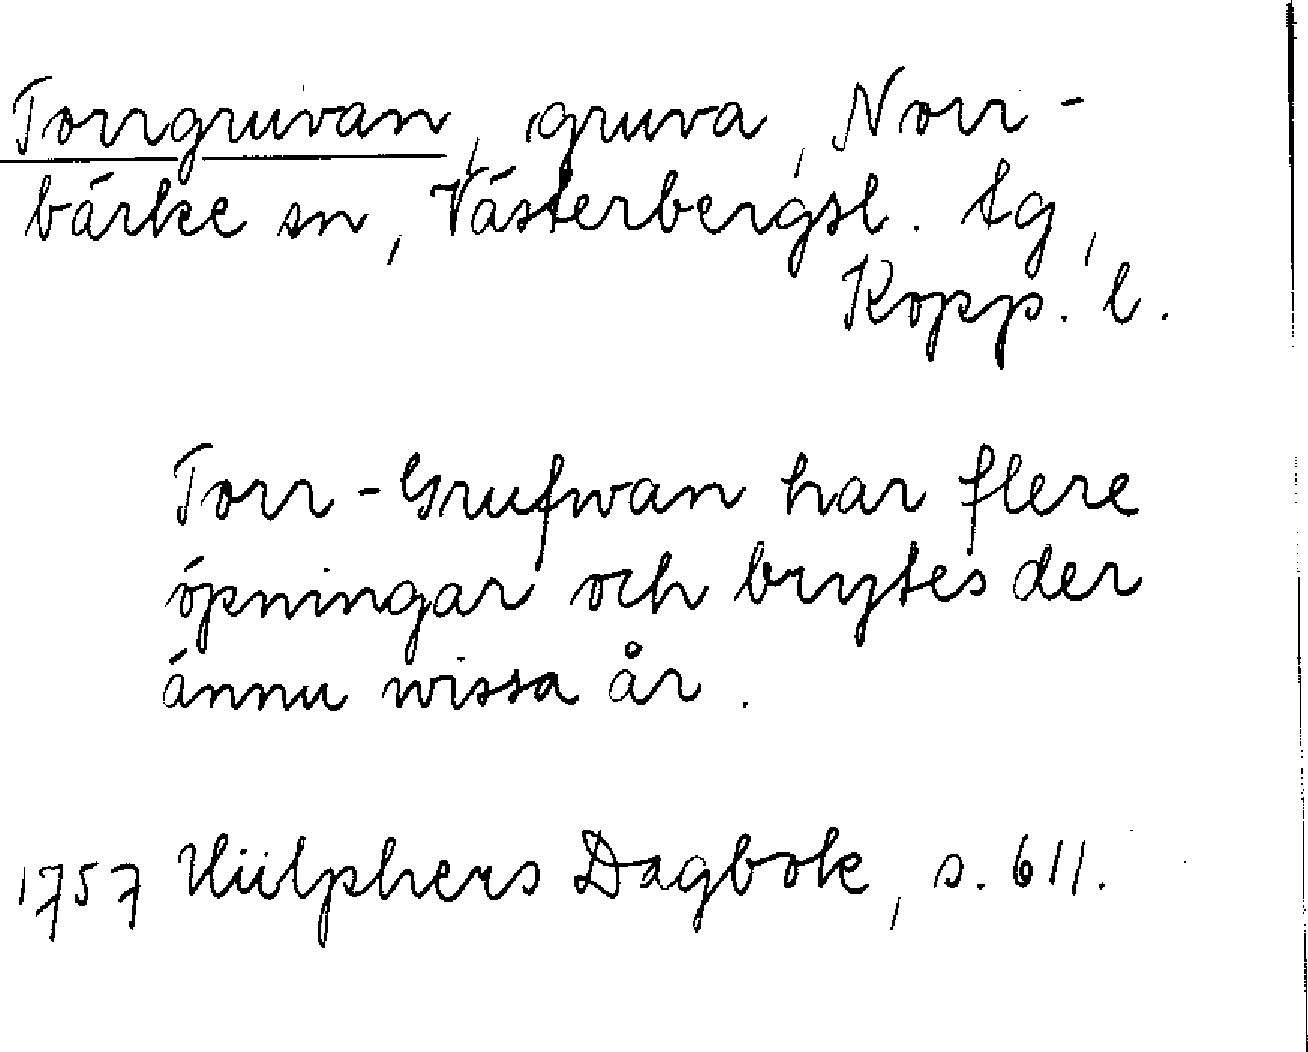 Torrgruvan, gruva, Norr-
bärke sn, Västerbergsl. tg,
Kopp. l.
Torr-Grufwan har flere
öpningar och brytes der
ännu wissa år.
1757 Hülphers Dagbok, s. 611.